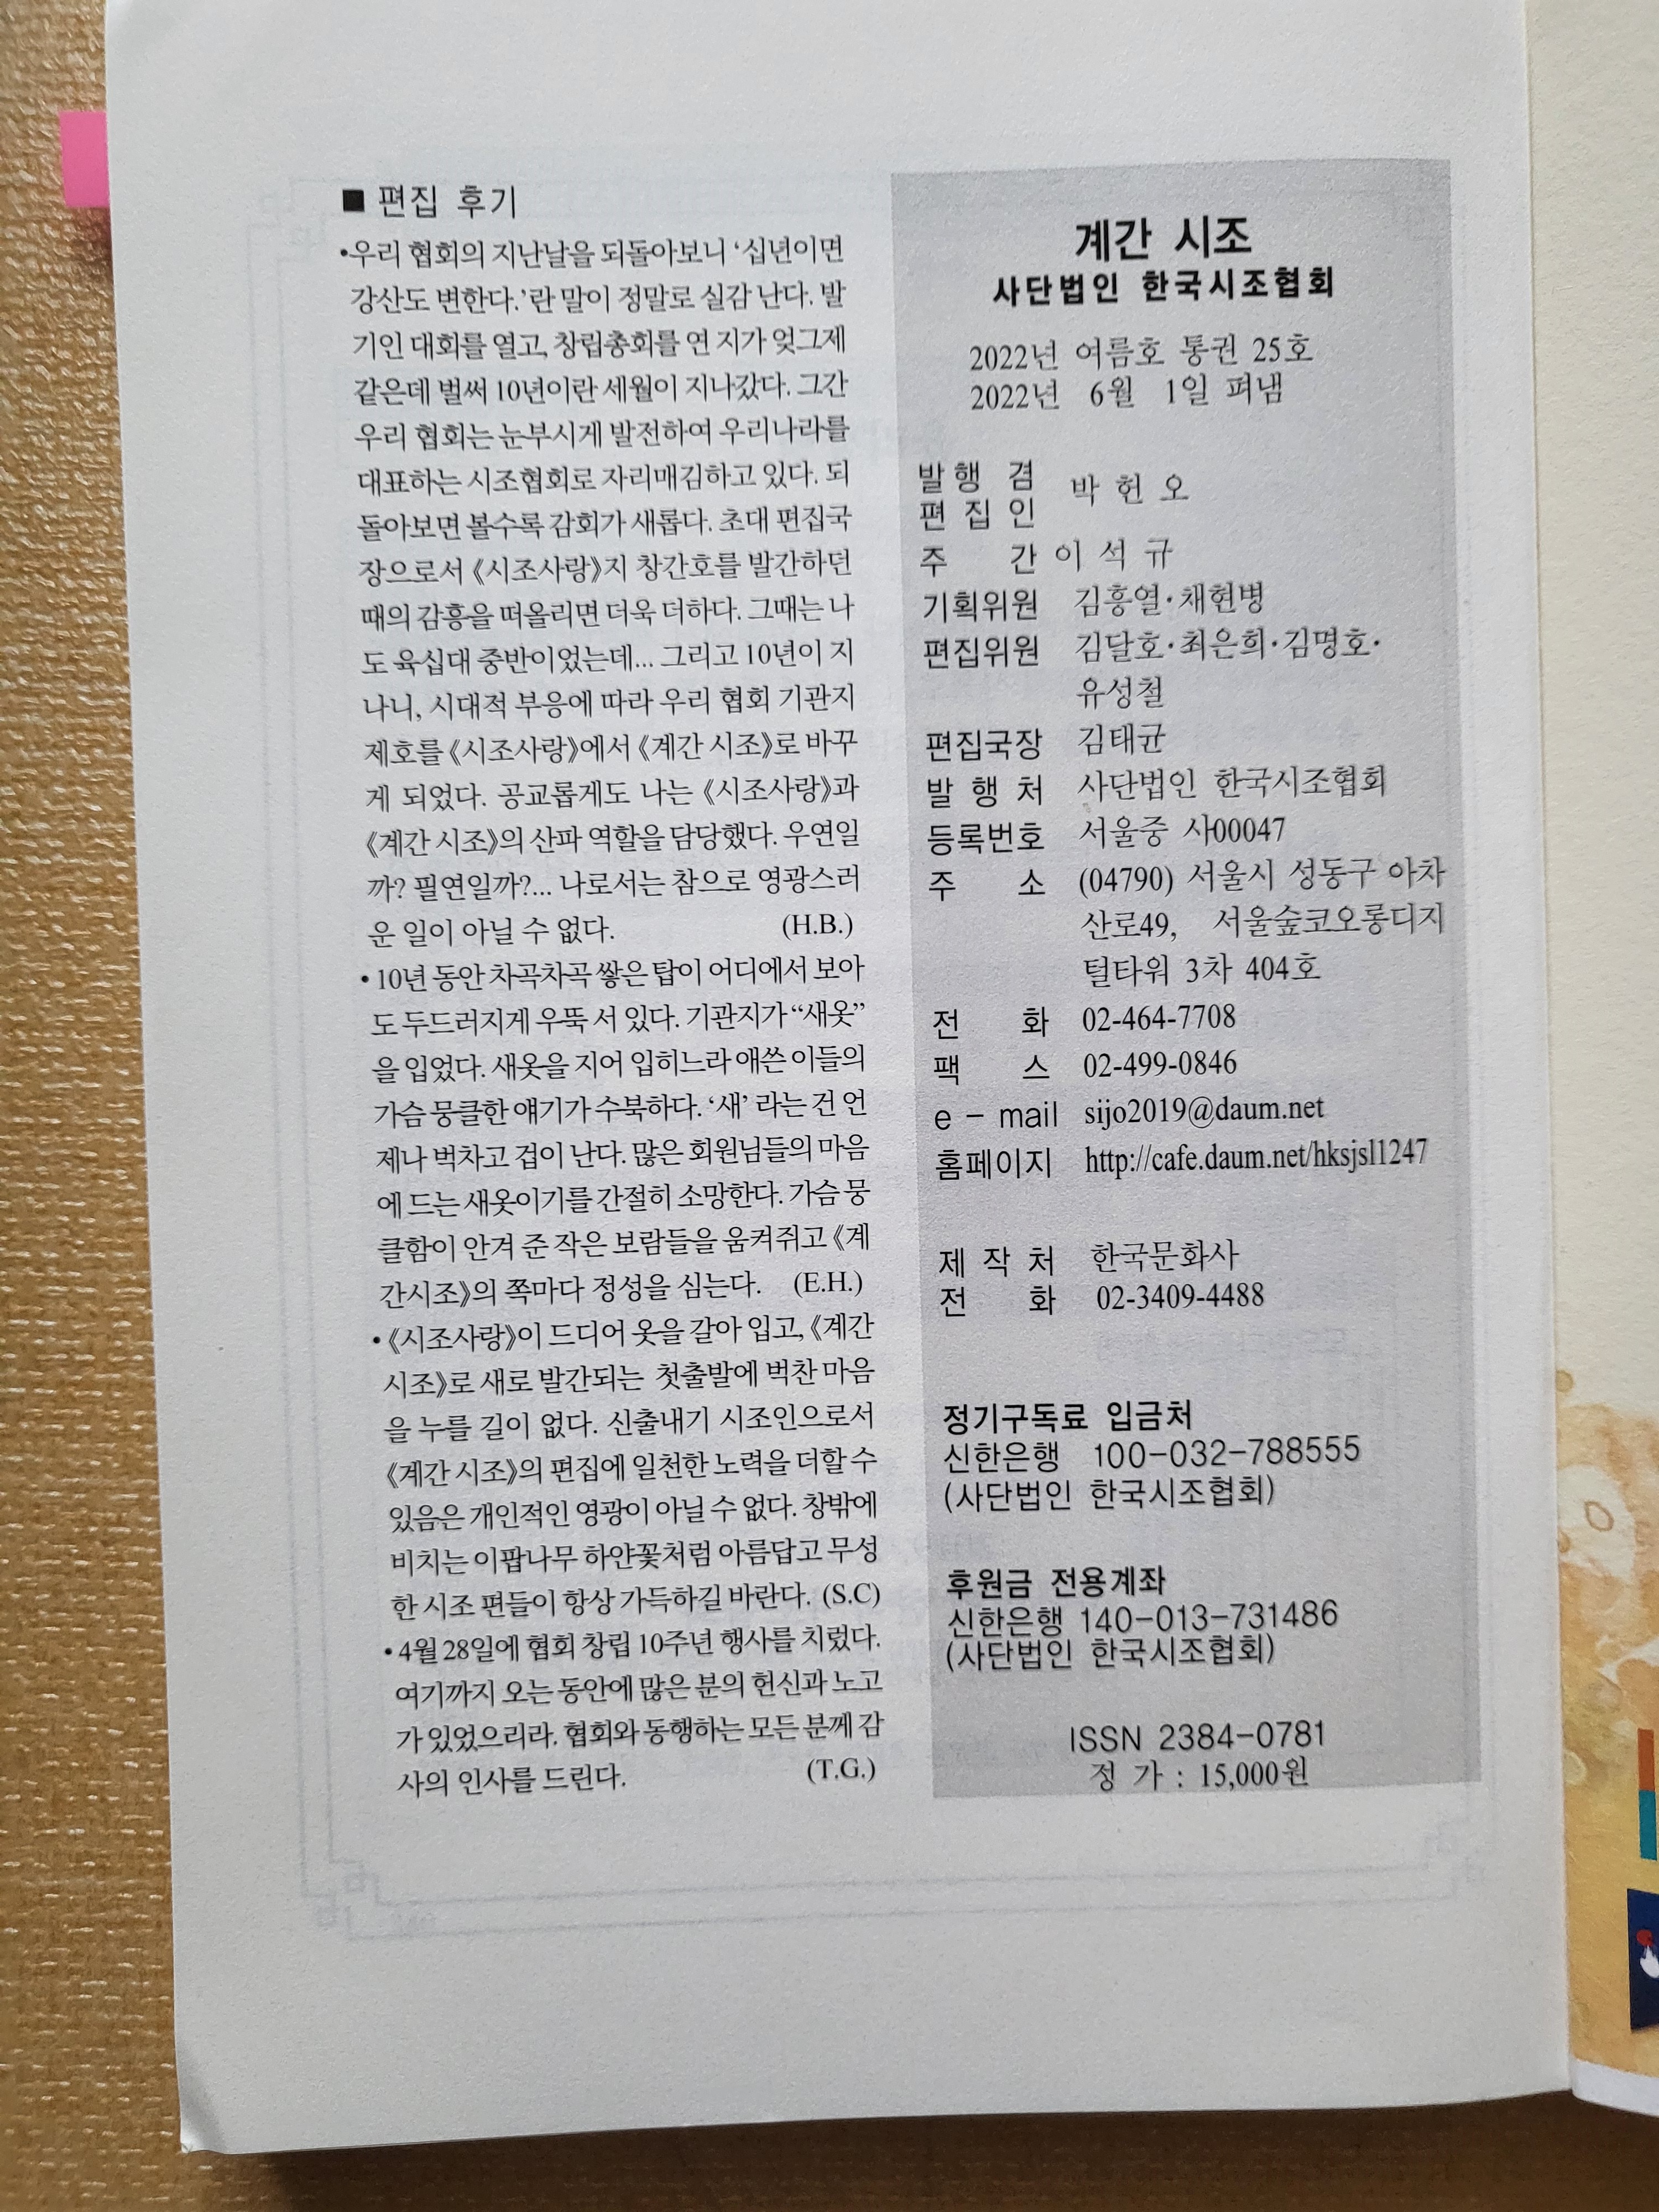 ■ 편집 후기
•우리 협회의 지난날을 되돌아보니 ‘십년이면
강산도 변한다.’란 말이 정말로 실감 난다. 발
기인 대회를 열고, 창립총회를 연 지가 엊그제
같은데 벌써 10년이란 세월이 지나갔다. 그간
우리 협회는 눈부시게 발전하여 우리나라를
대표하는 시조협회로 자리매김하고 있다. 되
돌아보면 볼수록 감회가 새롭다. 초대 편집국
장으로서 《시조사랑》지 창간호를 발간하던
때의 감흥을 떠올리면 더욱 더하다. 그때는 나
도 육십대 중반이었는데... 그리고 10년이 지
나니, 시대적 부응에 따라 우리 협회 기관지
제호를 《시조사랑》에서 《계간 시조》로 바꾸
게 되었다. 공교롭게도 나는 《시조사랑》과
《계간 시조》의 산파 역할을 담당했다. 우연일
까? 필연일까?... 나로서는 참으로 영광스러
운 일이 아닐 수 없다. (H.B.)
• 10년 동안 차곡차곡 쌓은 탑이 어디에서 보아
도 두드러지게 우뚝 서 있다. 기관지가 “새옷”
을 입었다. 새옷을 지어 입히느라 애쓴 이들의
가슴 뭉클한 얘기가 수북하다. ‘새’ 라는 건 언
제나 벅차고 겁이 난다. 많은 회원님들의 마음
에 드는 새옷이기를 간절히 소망한다. 가슴 뭉
클함이 안겨 준 작은 보람들을 움켜쥐고 《계
간시조》의 쪽마다 정성을 심는다. (E.H.)
• 《시조사랑》이 드디어 옷을 갈아 입고, 《계간
시조》로 새로 발간되는 첫출발에 벅찬 마음
을 누를 길이 없다. 신출내기 시조인으로서
《계간 시조》의 편집에 일천한 노력을 더할 수
있음은 개인적인 영광이 아닐 수 없다. 창밖에
비치는 이팝나무 하얀꽃처럼 아름답고 무성
한 시조 편들이 항상 가득하길 바란다. (S.C)
• 4월 28일에 협회 창립 10주년 행사를 치렀다.
여기까지 오는 동안에 많은 분의 헌신과 노고
가 있었으리라. 협회와 동행하는 모든 분께 감
사의 인사를 드린다. (T.G.)
계간 시조
사단법인 한국시조협회
2022년 여름호 통권 25호
2022년 6월 1일 펴냄
발 행 겸
편 집 인 박 헌 오
주 간 이 석 규
기획위원 김흥열·채현병
편집위원 김달호·최은희·김명호·
유성철
편집국장 김태균
발 행 처 사단법인 한국시조협회
등록번호 서울중 사00047
주 소 (04790) 서울시 성동구 아차
산로49, 서울숲코오롱디지
털타워 3차 404호
전 화 02-464-7708
팩 스 02-499-0846
e - mail sijo2019@daum.net
홈페이지 http://cafe.daum.net/hksjsl1247
제 작 처 한국문화사
전 화 02-3409-4488
정기구독료 입금처
신한은행 100-032-788555
(사단법인 한국시조협회)
후원금 전용계좌
신한은행 140-013-731486
(사단법인 한국시조협회)
ISSN 2384-0781
정 가 : 15,000원